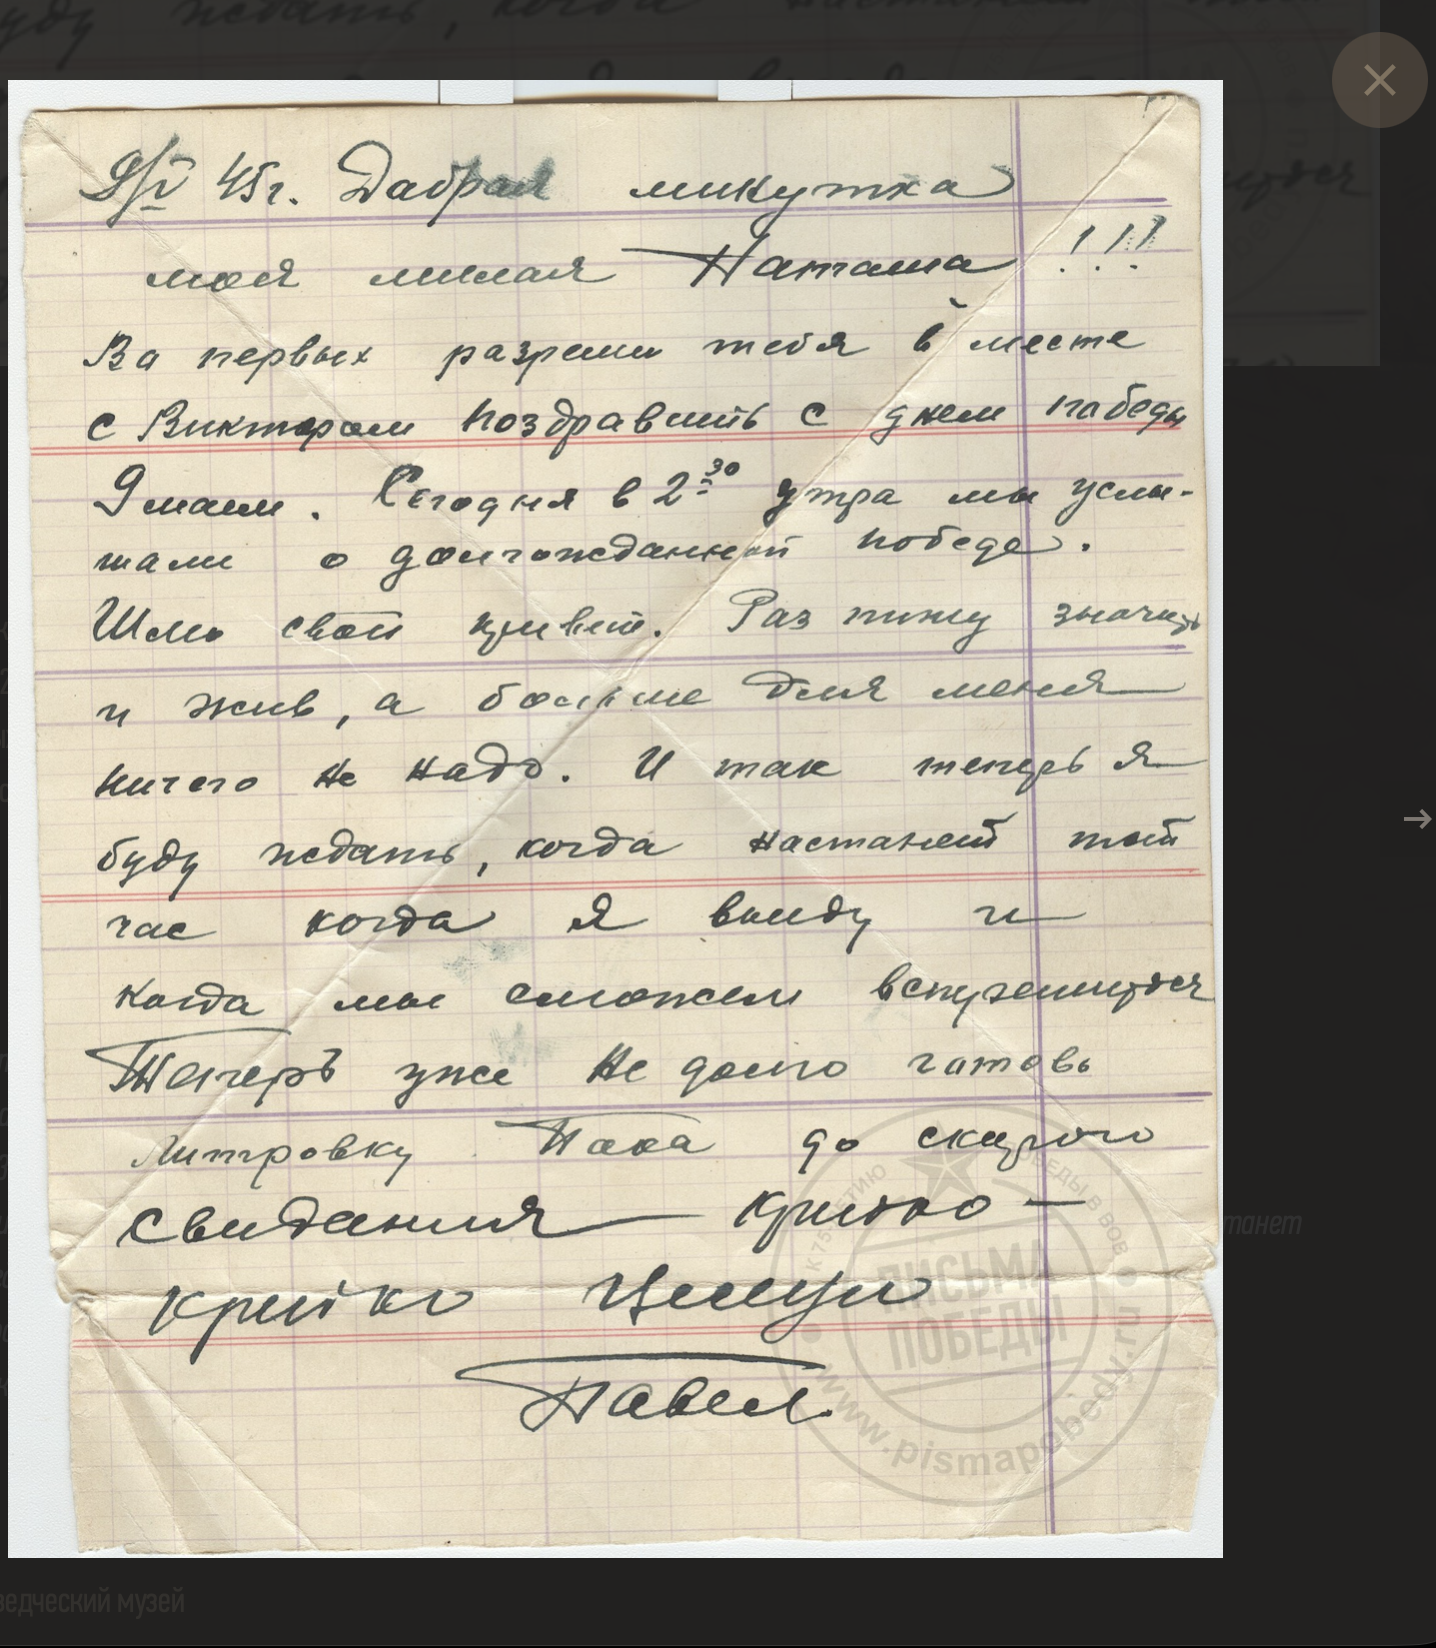 9/V 45г. Дабрая минутка
моя милая Наташа !!!
Ва первых разреши тебя в месте
с Виктором поздравить с днем победы
9 маем. Сегодня в 2 30 утра мы услы-
шали о долгожданной победе.
Шлю свой привет. Раз пишу значить
и жив, а больше для меня
ничего не надо. И так теперь я
буду ждать, когда настанет тот
час когда я выйду и
когда мы сможем
Теперь уже не долго готовь
литровку Пока до скорого
свидания — крепко —
крепко Целую
Павел.
ПИСЬМА
ПОБЕДЫ
www.pismapobedy.ru
танет
ведческий музей